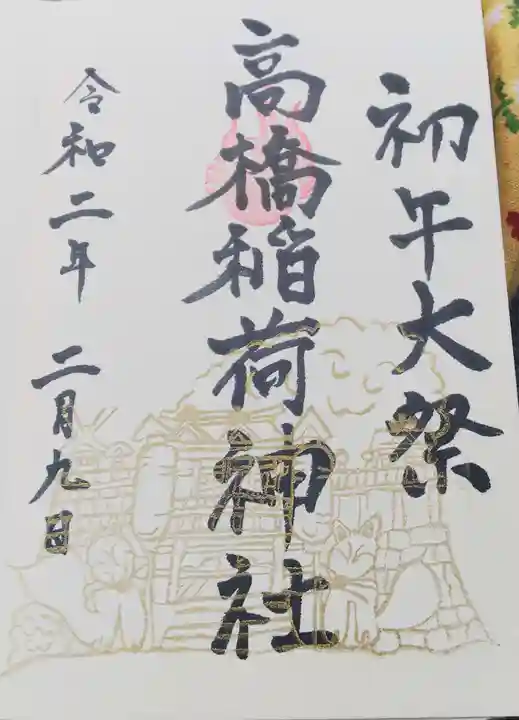 初午大祭
高橋稲荷神社
令和二年 二月九日